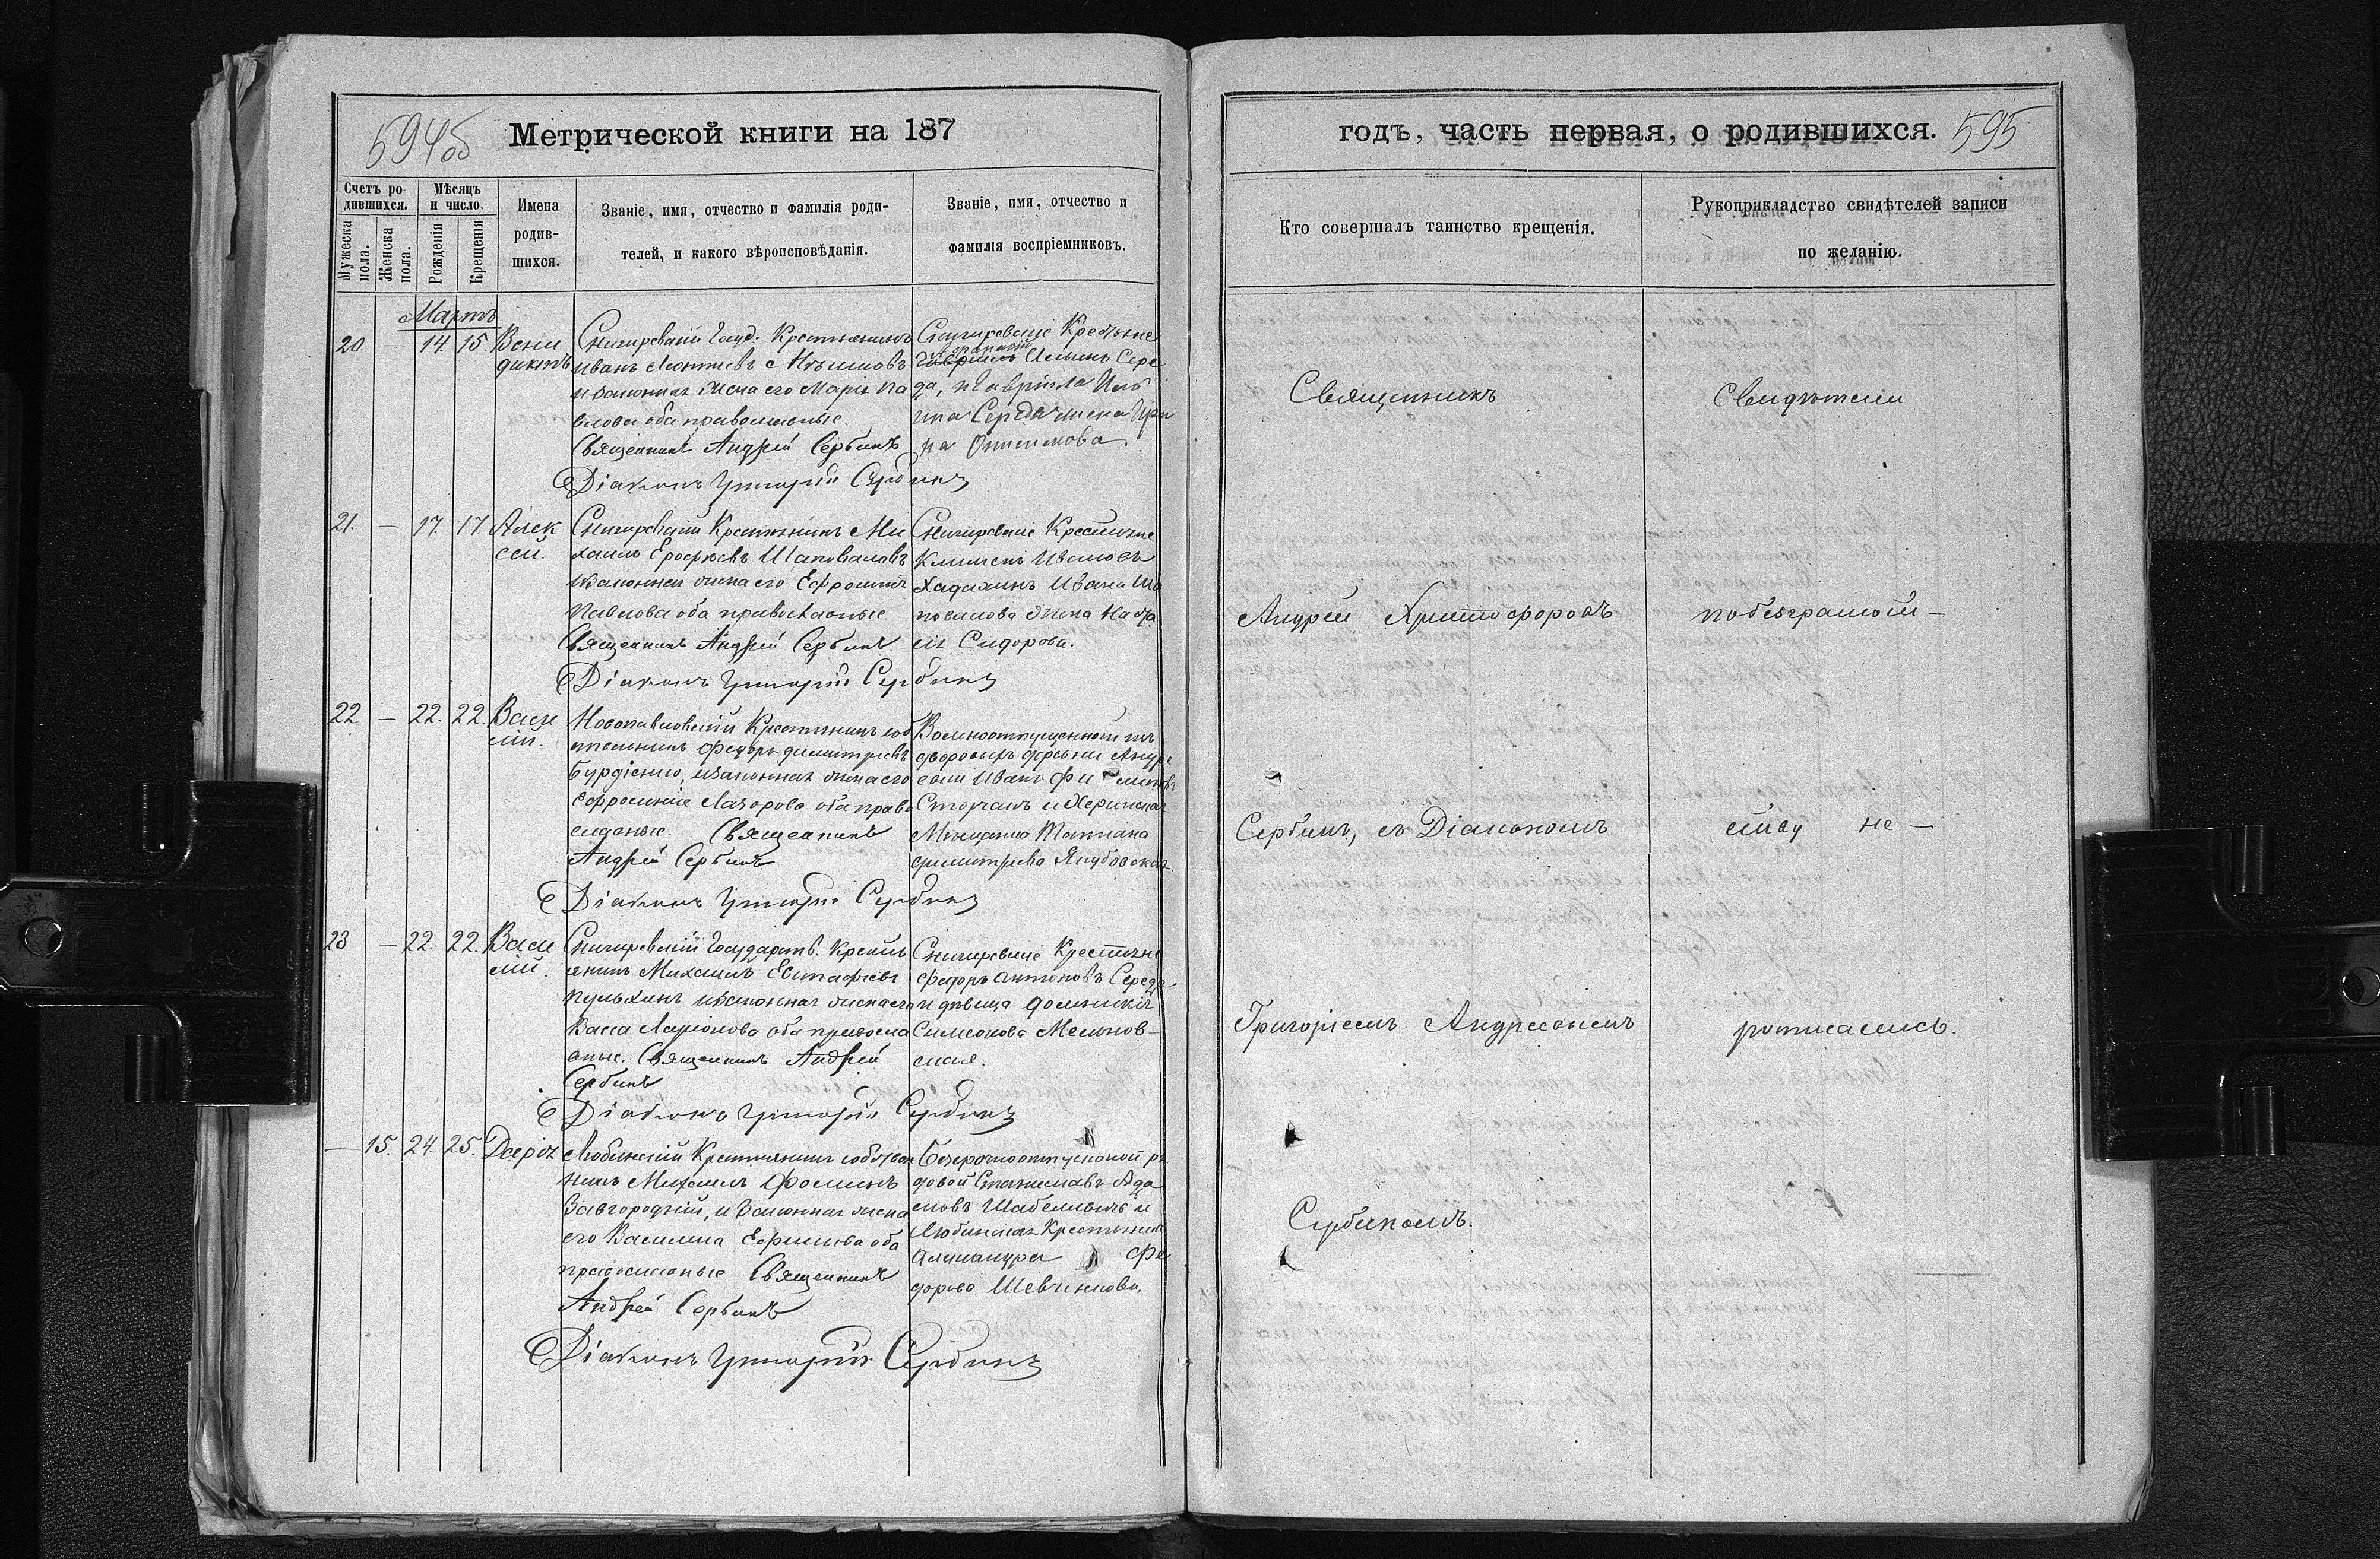 594об Метрической книги на 187
Счетъ родившихся. Мѣсяцъ и число.
Мужеска пола. Женска пола. Рожденія Крещенія
Имена родившихся.
Званіе, имя, отчество и фамилія роди-
телей, и какого вѣроисповѣданія.
Званіе, имя, отчество и
фамилія воспріемниковъ.
Мартъ
20 — 14. 15. Вени
диктъ
Снигиревскій Госуд. Крестьянинъ
Иванъ Леонтіевъ
и законная жена его Марія Па
влова оба православные.
Священникъ Андрей Сербинъ
Діаконъ Григорій Сербинъ
Снигиревские Крестьяне
Ильинъ Сере
да, и Гавріила Иль
ина Середы жена Ири
на
21. — 17. 17. Алек
сѣй.
Снигиревскій Крестьянинъ Ми
хаилъ Ерофѣевъ Шаповаловъ
и законная жена его Ефросинія
Павлова оба православные
Священникъ Андрей Сербинъ
Діаконъ Григорій Сербинъ
Снигиревские Крестьяне
Климентъ
Ивана Ша
повалова жена
Сидорова.
22 — 22. 22. Васи
лій.
Новопавловскій Крестьянинъ соб
ственникъ Федоръ Димитріевъ
Бурдіенко, и законная жена его
Ефросинія Лазорова оба право
славные. Священникъ
Андрей Сербинъ
Діаконъ Григорій Сербинъ
Вольноотпущенный изъ
дворовыхъ деревни Андре
евки Иванъ
и Херинская
Мѣщанка Татіана
Димитріева Якубовская
23 — 22. 22. Васи
лій.
Снигиревскій Государств. Кресть
янинъ Михаилъ Евстафіевъ
и законная жена его
Васса Ларіонова оба правосла
вные. Священникъ Андрей
Сербинъ
Діаконъ Григорій Сербинъ
Снигиревские Крестьяне
Федоръ Антоновъ Середа
и дѣвица Домникія
Симеонова
— 15. 24. 25. Дарія
Любинскій Крестьянинъ собствен
никъ Михаилъ Фоминъ
Завгородній, и законная жена
его Василиса Ефимова оба
православные Священникъ
Андрей Сербинъ
Діаконъ Григорій Сербинъ
Безсрочноотпускной ря
довой Станиславъ Ада
мовъ и
Любинская Крестьянка
Александра Фе
дорова
годъ, часть первая, о родившихся. 595
Кто совершалъ таинство крещенія.
Рукоприкладство свидѣтелей записи
по желанію.
Священникъ
Андрей Христофоровъ
Сербинъ, съ Діакономъ
Григоріемъ Андреевымъ
Сербиномъ.
Свидѣтели
по безграмот—
ству не —
росписались.